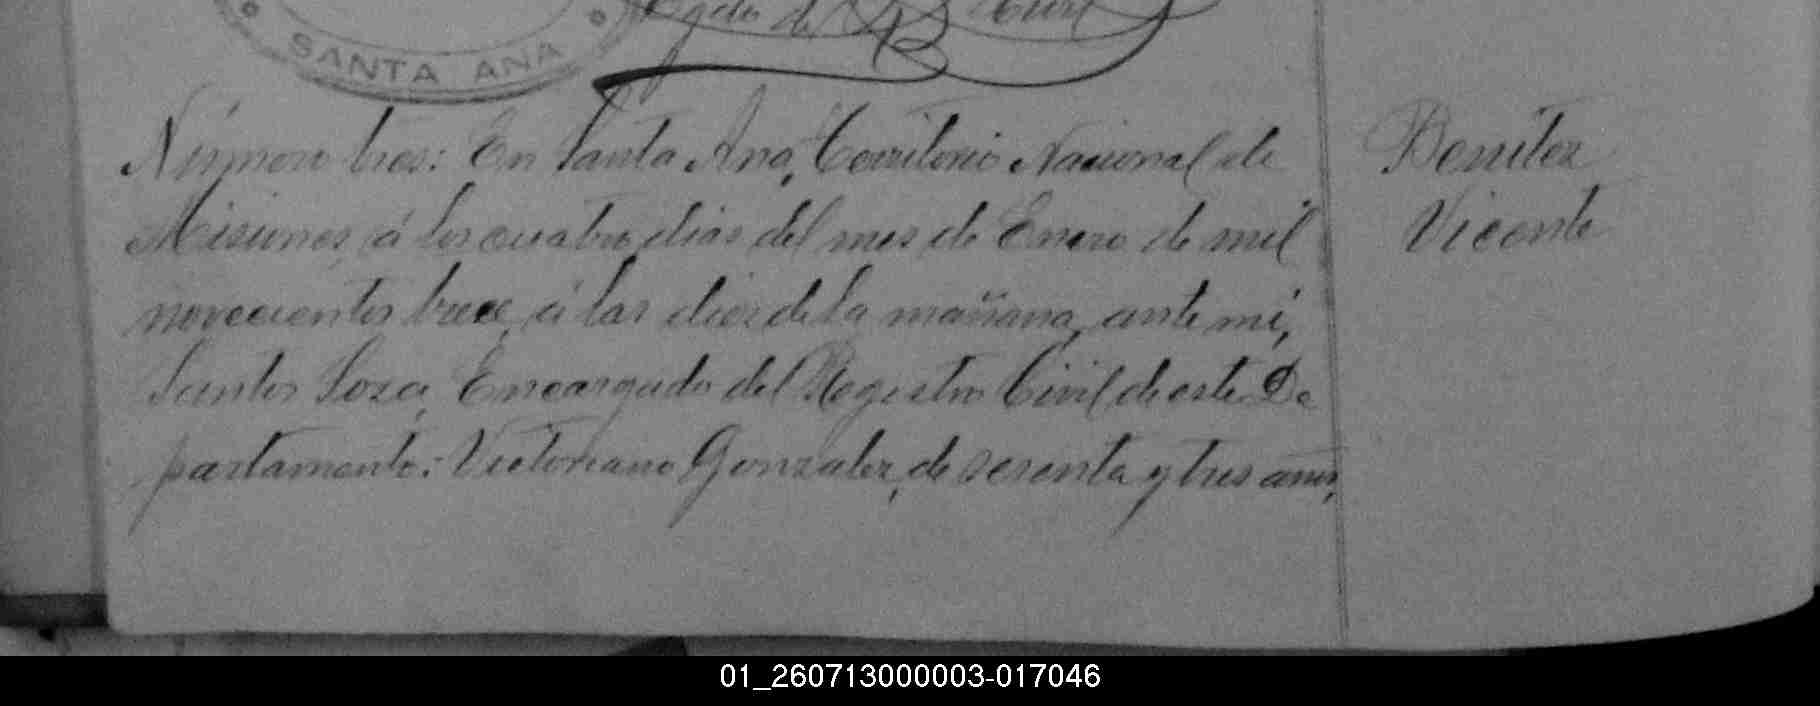 SANTA ANA
Número tres: En Santa Ana, Territorio Nacional de
Misiones, á los cuatro dias del mes de Enero de mil
novecientos trece, á las diez de la mañana, ante mi,
Santos Soza, Encargado del Registro Civil de este De
partamento:- Victoriano Gonzalez, de sesenta y tres años,
Benitez
Vicente
01_260713000003-017046